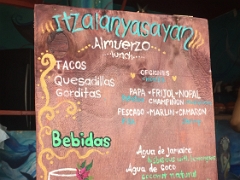 Itzalanyasayan
Almuerzo
lunch
TACOS
Quesadillas
Gorditas
OPCIONES
PAPA + FRIJOL + NOPAL
CHAMPIÑON
PESCADO - MARLIN - CAMARON
Bebidas
Agua de jamaica
Agua de coco
coconut natural